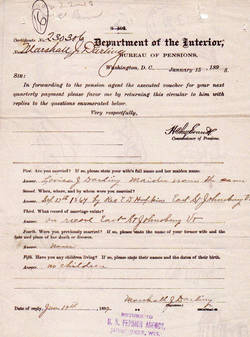 3-402
Certificate No. 230306
Department of the Interior,
Name, Marshall J. Darling
BUREAU OF PENSIONS,
Washington, D. C., January 15, 1898
SIR:
In forwarding to the pension agent the executed voucher for your next
quarterly payment please favor me by returning this circular to him with
replies to the questions enumerated below.
Very respectfully,
Commissioner of Pensions.
First. Are you married? If so, please state your wife's full name and her maiden name.
Answer. Louisa J. Darling Maiden name the same
Second. When, where, and by whom were you married?
Answer. by Rev. T. Hopkins East St Johnsbury Vt
Third. What record of marriage exists?
Answer. on record East St Johnsbury Vt
Fourth. Were you previously married? If so, please state the name of your former wife and the
date and place of her death or divorce.
Answer. none
Fifth. Have you any children living? If so, please state their names and the dates of their birth.
Answer. no children
Marshall J. Darling
(Signature.)
Date of reply,
U. S. PENSION AGENCY,